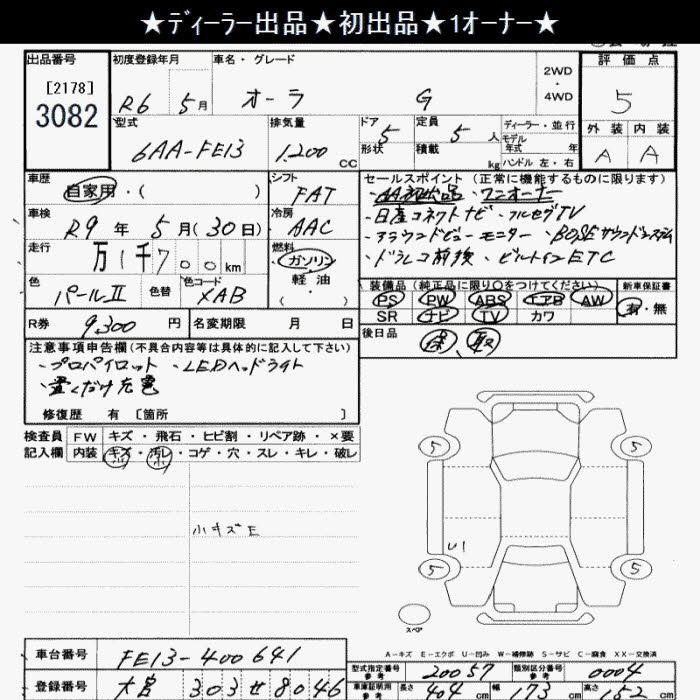 ★ディーラー出品★初出品★1オーナー★
出品番号 [2178] 3082
初度登録年月 R6 5月
車名・グレード オーラ G
2WD・4WD
評価点 5
型式 6AA-FE13
排気量 1,200 cc
ドア 5 形状
定員 5 人 積載 kg
ディーラー・並行
モデル年式 年
ハンドル 左・右
外装 内装
A A
車歴 自家用・( )
シフト FAT
車検 R9 年 5 月(30日)
冷房 AAC
走行 万 1千700km
燃料 ガソリン 軽油 ( )
色 パールⅡ 色替 色コード XAB
R券 9,300 円 名変期限 月 日
セールスポイント(正常に機能するものに限ります)
・AA初出品 ・ワンオーナー
・日産コネクトナビ・フルセグTV
・アラウンドビューモニター ・BOSEサウンドシステム
・ドラレコ前後 ・ビルトインETC
装備品(純正品に限り○をつけてください)
PS PW ABS エアB AW
SR ナビ TV カワ
新車保証書 有・無
後日品 保、取
注意事項申告欄(不具合内容等は具体的に記入して下さい)
・プロパイロット ・LEDヘッドライト
・置くだけ充電
修復歴 有 [箇所 ]
検査員記入欄
FW キズ・飛石・ヒビ割・リペア跡・×要
内装 キズ・汚レ・コゲ・穴・スレ・キレ・破レ
小キズE
5 5
U1
5 5
スペア
A-キズ E-エクボ U-凹み W-補修跡 S-サビ C-腐食 XX-交換済
車台番号 FE13-400641
登録番号 303せ8046
型式指定番号 参考 20057
類別区分番号 参考 0004
車庫証明用 参考 長さ 404 cm 幅 173 cm 高さ 152 cm